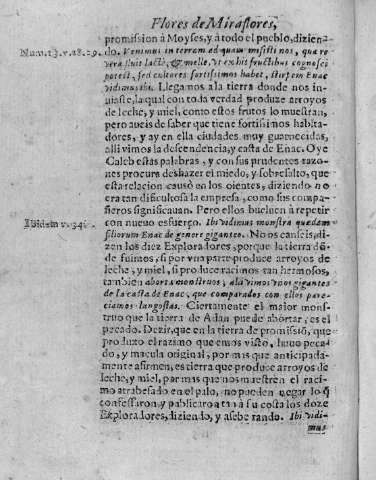 Flores de Miraflores,
promission à Moyses, y à todo el pueblo, dizien
do. Venimus in terram ad quam misisti nos, quæ re
Num. 13. v. 28. 29.
vera fluit lacte, & melle, vt ex his fructibus cognosci
potest, sed cultores fortissimos habet, stirpem Enac
vidimus ibi. Llegamos à la tierra donde nos in-
uiaste, la qual con toda verdad produze arroyos
de leche, y miel, como estos frutos lo muestran,
pero aueis de saber que tiene fortissimos habita-
dores, y ay en ella ciudades muy guarnecidas,
alli vimos la descendencia, y casta de Enac. Oye
Caleb estas palabras, y con sus prudentes razo-
nes procura deshazer el miedo, y sobresalto, que
esta relacion causò en los oientes, diziendo no
era tan dificultosa la empresa, como sus compa-
ñeros significauan. Pero ellos bueluen à repetir
con nueuo esfuerço. Ibi vidimus monstra quædam
Ibidem v. 34.
filiorum Enac de genere giganteo. No os canseis, di-
zen los diez Exploradores, porque la tierra dõ-
de fuimos, si por vna parte produze arroyos de
leche, y miel, si produze racimos tan hermosos,
tambien aborta monstruos, alli vimos vnos gigantes
de la casta de Enac, que comparados con ellos pare-
ciamos langostas. Ciertamente el maior mons-
truo que la tierra de Adan puede abortar, es el
pecado. Dezir, que en la tierra de promissiõ, que
produxo el razimo que emos visto, huuo peca-
do, y macula original, por mas que anticipada-
mente afirmen, es tierra que produze arroyos de
leche, y miel, por mas que nos muestren el raci-
mo atrabesado en el palo, no pueden negar lo q̃
confessaron, y publicaron tan à su costa los doze
Exploradores, diziendo, y aseberando. Ibi vidi-
mus